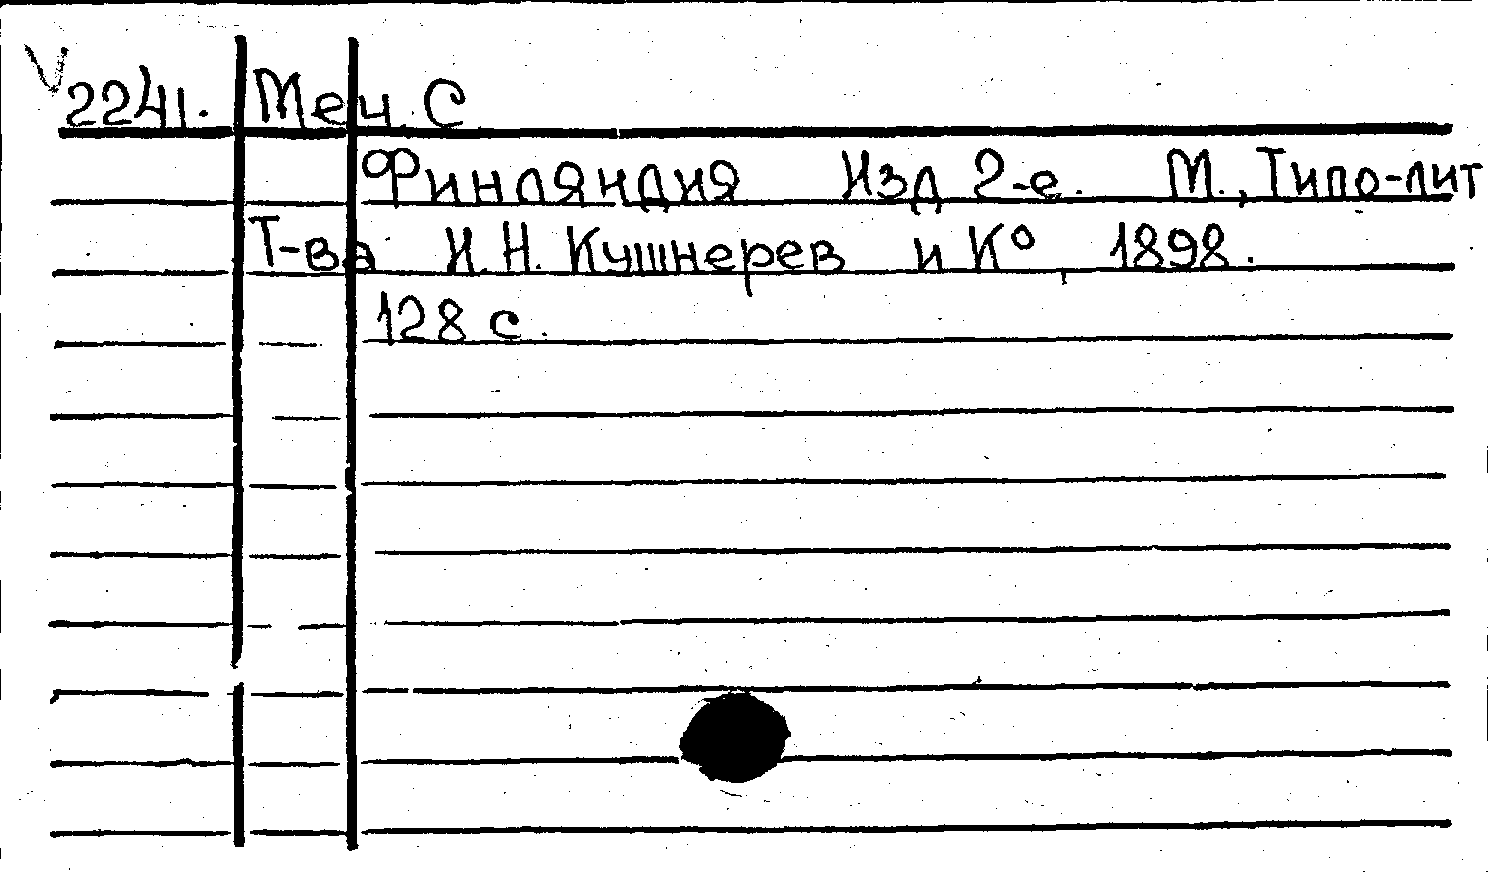 V 2241. Меч. С
Финляндия Изд 2-е. М., Типо-лит
Т-ва И.Н. Кушнерев и К°, 1898.
128 с.